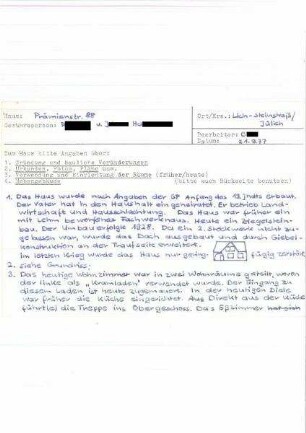 Haus: Prämienstr. 88
Gewährsperson: S u. J Hu
Ort/Krs.: Lich-Steinstraß/
Jülich
Bearbeiter: C
Datum: 31.9.77
Zum Haus bitte Angaben über:
1. Gründung und bauliche Veränderungen
2. Urkunden, Fotos, Pläne usw.
3. Verwendung und Einrichtung der Räume (früher/heute)
4. Lebensweise (bitte auch Rückseite benutzen)
1. Das Haus wurde nach Angaben der GP Anfang des 19. Jhdts erbaut.
Der Vater hat in den Haushalt eingeheiratet. Er betrieb Land-
wirtschaft und Hausschlachtung. Das Haus war früher ein
mit Lehm beworfenes Fachwerkhaus. Heute ein Ziegelstein-
bau. Der Umbau erfolgte 1928. Da ein 2. Stockwerk nicht zu-
gelassen war, wurde das Dach ausgebaut und durch Giebel-
konstruktion an der Traufseite erweitert.
Im letzten Krieg wurde das Haus nur gering- fügig zerstört.
2. siehe Grundriß;
3. Das heutige Wohnzimmer war in zwei Wohnräume geteilt, wovon
der linke als "Kramladen" verwendet wurde. Der Eingang zu
diesem Laden ist heute zugemauert. In der heutigen Diele
war früher die Küche eingerichtet. Direkt aus der Küche
führte die Treppe ins Obergeschoss. Das